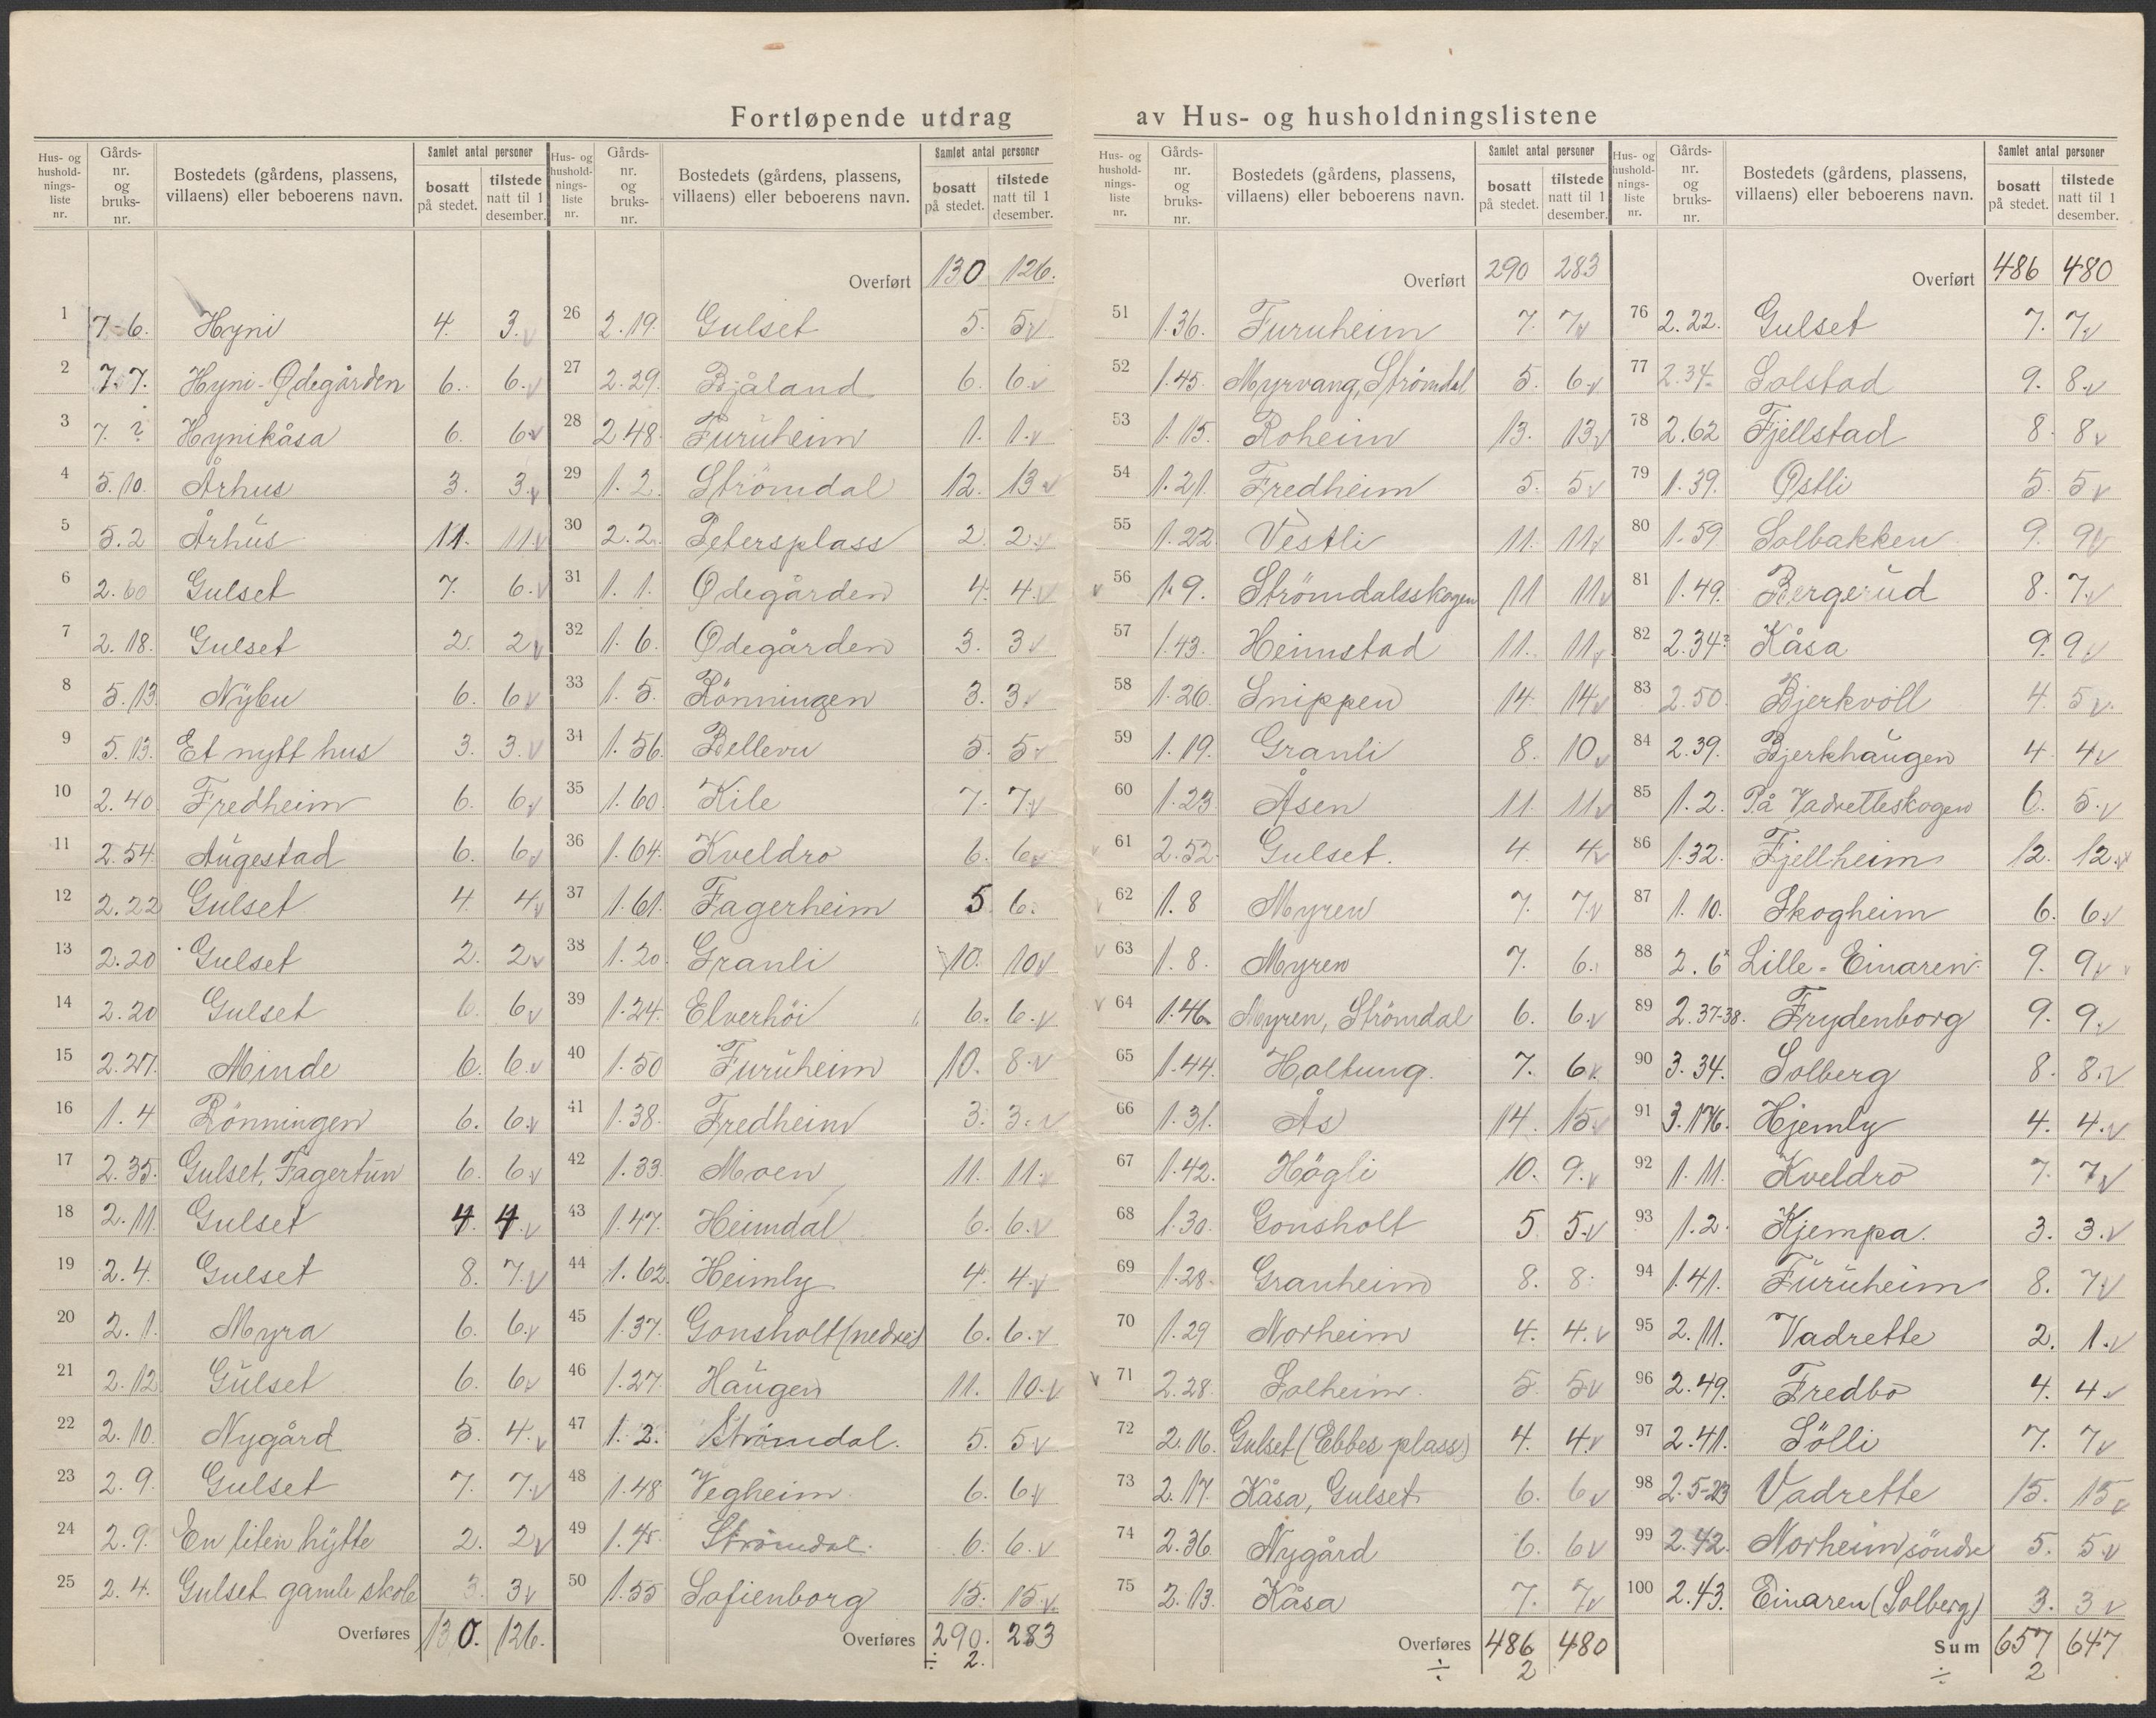 Fortløpende utdrag av Hus- og husholdningslistene
Hus- og hushold-nings-liste nr. | Gårds-nr. og bruks-nr. | Bostedets (gårdens, plassens, villaens) eller beboerens navn. | Samlet antal personer | bosatt på stedet. | tilstede natt til 1 desember.
1 7-6. Hyni 4. 3.
2 7.7. Hyni-Ødegården 6. 6.
3 7. ? Hynikåsa 6. 6
4 5.10. Århus 3. 3.
5 5.2 Århus 11. 11.
6 2.60 Gulset 7. 6.
7 2.18. Gulset 2. 2
8 5.13 Nybu 6. 6
9 5.13. Et nytt hus 3. 3.
10 2.40 Fredheim 6. 6.
11 2.54. Augestad 6. 6
12 2.22 Gulset 4. 4
13 2.20 Gulset 2. 2
14 2.20 Gulset 6. 6
15 2.27. Minde 6. 6.
16 1.4 Rönningen 6. 6.
17 2.35. Gulset, Fagertun 6. 6
18 2.11. Gulset 4. 4.
19 2.4. Gulset 8. 7.
20 2.1. Myra 6. 6.
21 2.12 Gulset 6. 6
22 2.10. Nygård 5. 4.
23 2.9. Gulset 7. 7.
24 2.9. En liten hytte 2. 2
25 2.4. Gulset gamle skole 3. 3
Overføres 130. 126.
Overført 130 126.
26 2.19. Gulset 5. 5
27 2.29. Bjåland 6. 6.
28 2 48. Furuheim 1. 1.
29 1.2. Strömdal 12. 13
30 2.2. Petersplass 2. 2.
31 1.1. Ødegården 4. 4.
32 1.6. Ødegården 3. 3
33 1.5. Rönningen 3. 3
34 1.56. Bellevu 5. 5
35 1.60. Kile 7. 7.
36 1.64. Kveldro 6. 6
37 1.61. Fagerheim 5 6.
38 1.20. Granli 10. 10
39 1.24. Elverhöi 6. 6.
40 1.50 Furuheim 10. 8.
41 1.38. Fredheim 3. 3.
42 1.33. Moen 11. 11.
43 1.47. Heimdal 6. 6.
44 1.62. Heimly 4. 4.
45 1.37. Gonsholt (nedre) 6. 6.
46 1.27. Haugen 11. 10.
47 1.2. Strömdal. 5. 5
48 1.48 Vegheim 6. 6.
49 1.45. Strömdal. 6. 6.
50 1.55 Sofienborg 15. 15.
Overføres 290. 283
÷ 2.
Overført 290 283
51 1.36. Furuheim 7. 7
52 1.45. Myrvang, Strömdal 5. 6.
53 1.15. Roheim 13. 13
54 1.21. Fredheim 5. 5
55 1.22 Vestli 11. 11
56 1.9. Strömdalsskogen 11 11
57 1.43. Heimstad 11. 11
58 1.26. Snippen 14. 14
59 1.19. Granli 8. 10
60 1.23. Åsen 11. 11
61 2.52. Gulset. 4. 4
62 1.8 Myren 7. 7.
63 1.8. Myren 7. 6.
64 1.46. Myren, Strömdal 6. 6.
65 1.44. Holtung. 7. 6
66 1.31. Ås 14. 15
67 1.42. Högli 10. 9.
68 1.30. Gonsholt 5 5.
69 1.28. Granheim 8. 8.
70 1.29 Norheim 4. 4.
71 2.28. Solheim. 5. 5
72 2.16. Gulset (Ebbes plass) 4. 4
73 2.17. Kåsa, Gulset 6. 6
74 2.36. Nygård 6. 6
75 2.13. Kåsa 7. 7
Overføres 486 480
÷ 2
Overført 486 480
76 2.22. Gulset 7. 7
77 2.34. Solstad 9. 8.
78 2.62 Fjellstad 8. 8
79 1.39. Østli 5. 5
80 1.59 Solbakken 9. 9
81 1.49. Bergerud 8. 7.
82 2.34? Kåsa 9. 9
83 2.50. Bjerkvoll 4. 5
84 2.39. Bjerkhaugen 4. 4
85 1.2. På Vadretteskogen 6. 5.
86 1.32. Fjellheim 12. 12.
87 1.10. Skogheim 6. 6.
88 2.6 Lille-Einaren. 9. 9
89 2.37-38. Frydenborg 9. 9.
90 3.34. Solberg 8. 8.
91 3.176. Hjemly 4. 4.
92 1.11. Kveldro 7. 7
93 1.2. Kjempa. 3. 3.
94 1.41. Furuheim 8. 7
95 2.11. Vadrette 2. 1.
96 2.49. Fredbo 4. 4
97 2.41. Sölli 7. 7
98 2.5-23 Vadrette 15. 15
99 2.42. Norheim söndre 5. 5
100 2.43. Einaren (Solberg) 3. 3
Sum 657 647
÷ 2